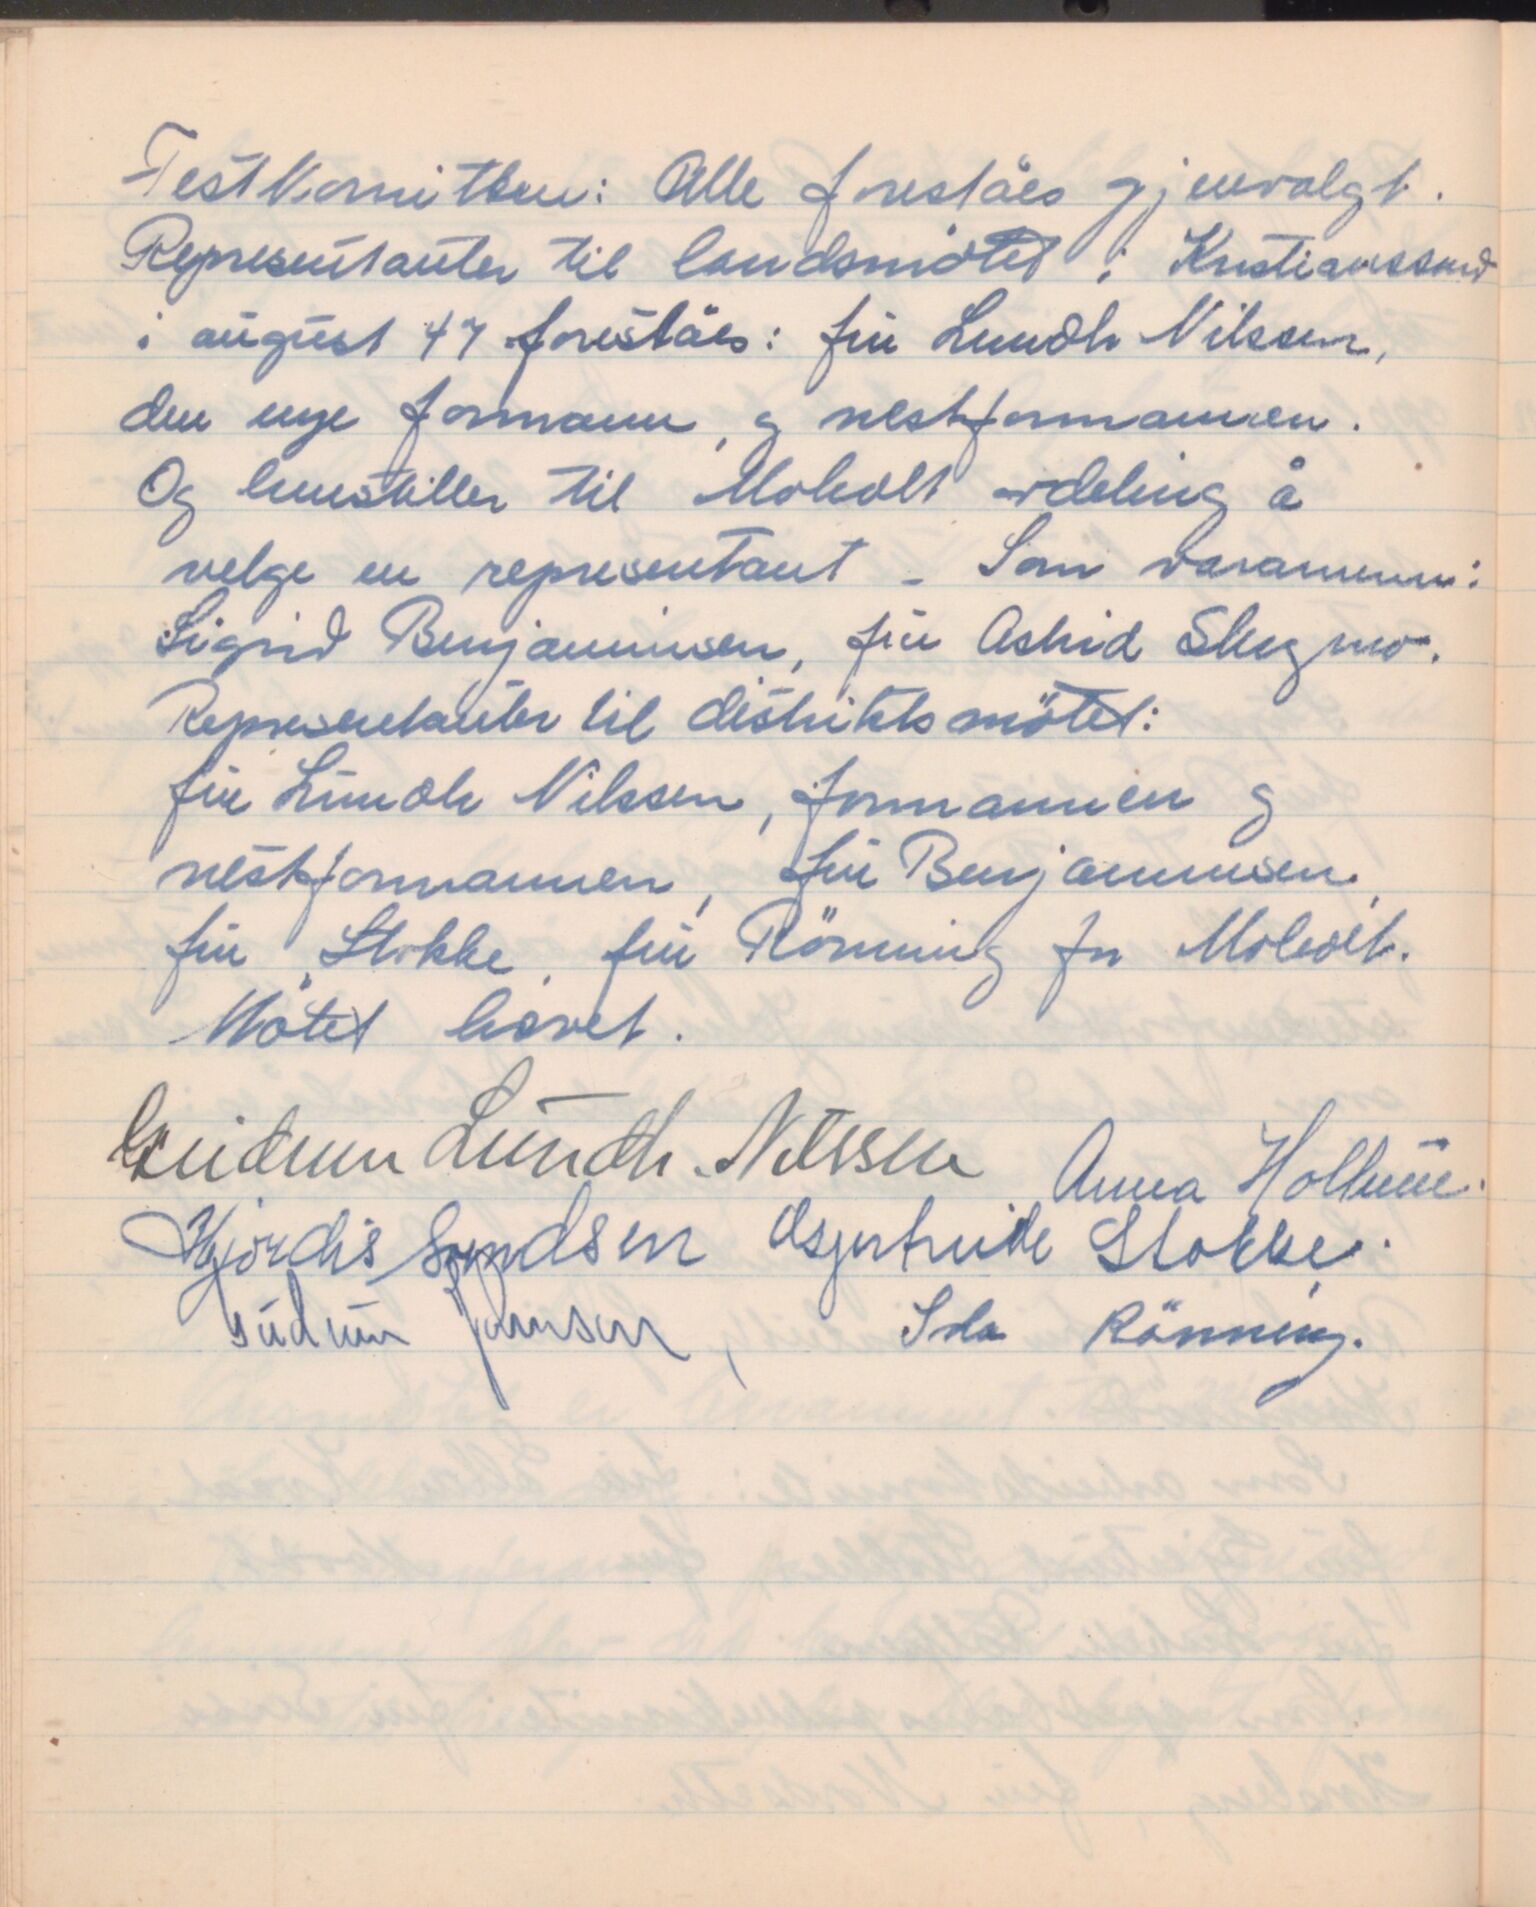 Festkomitèen: Alle forestäes gjenvalgt.
Representanter til landsmötet i Kristianssund
i august 47 forestäes: fru Lundh Nilssen,
den nye formann, og nestformannen.
Og henstiller til Moholt avdeling å
velge en representant - Som varamenn:
Sigrid Benjaminsen, fru Astrid Skogmo.
Representanter til distriktsmötet:
fru Lundh Nilssen, formannen og
nestformannen, fru Benjaminsen,
fru Stokke, fru Rönning for Moholt.
Mötet hevet.
Gudrun Lundh-Nilssen Anna Hollum.
Hjördis Svendsen Stokke.
Gudrun Johnson, Ida Rönning.